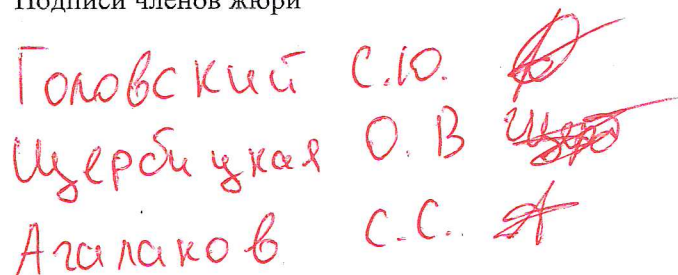 Подписи членов жюри
Головский С.Ю.
Щербицкая О.В
Агалаков С.С.